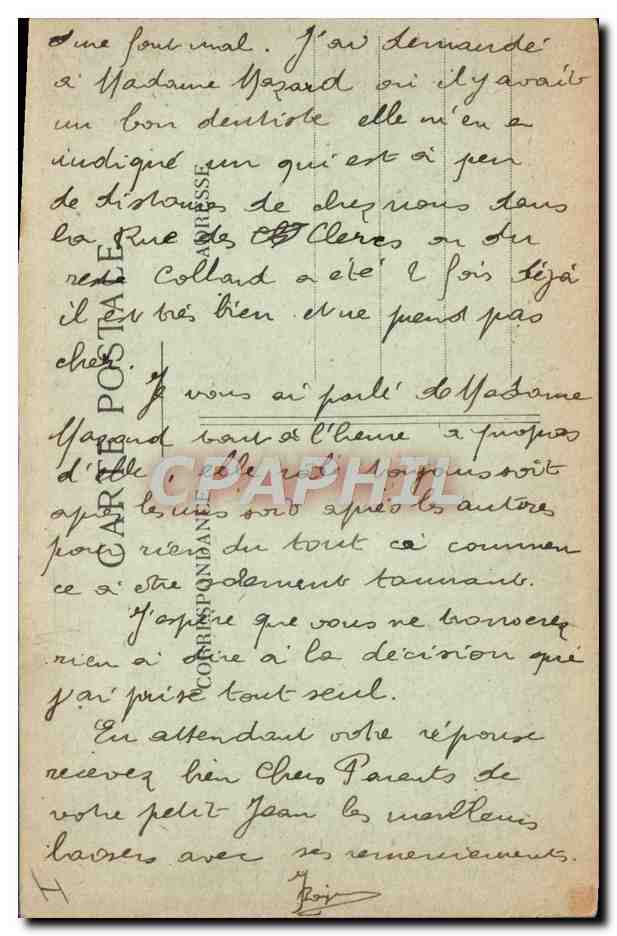 me font mal. J'ai demandé
à Madame Mazard où il y avait
un bon dentiste elle m'en a
indiqué un qui est à peu
de distances de chez nous dans
la Rue des Clercs ou du
reste Collard a été 2 fois déjà
il est très bien et ne prend pas
cher.
Je vous ai parlé de Madame
Mazard tout à l'heure à propos
d'elle, elle râle toujours soit
après les uns soit après les autres
pour rien du tout ça commen
ce à être rudement tannant.
J'espère que vous ne trouverez
rien à dire à la décision que
j'ai prise tout seul.
En attendant votre réponse
recevez bien Chers Parents de
votre petit Jean les meilleurs
baisers avec ses remerciements.
CARTE POSTALE
CORRESPONDANCE
ADRESSE
CPAPHIL